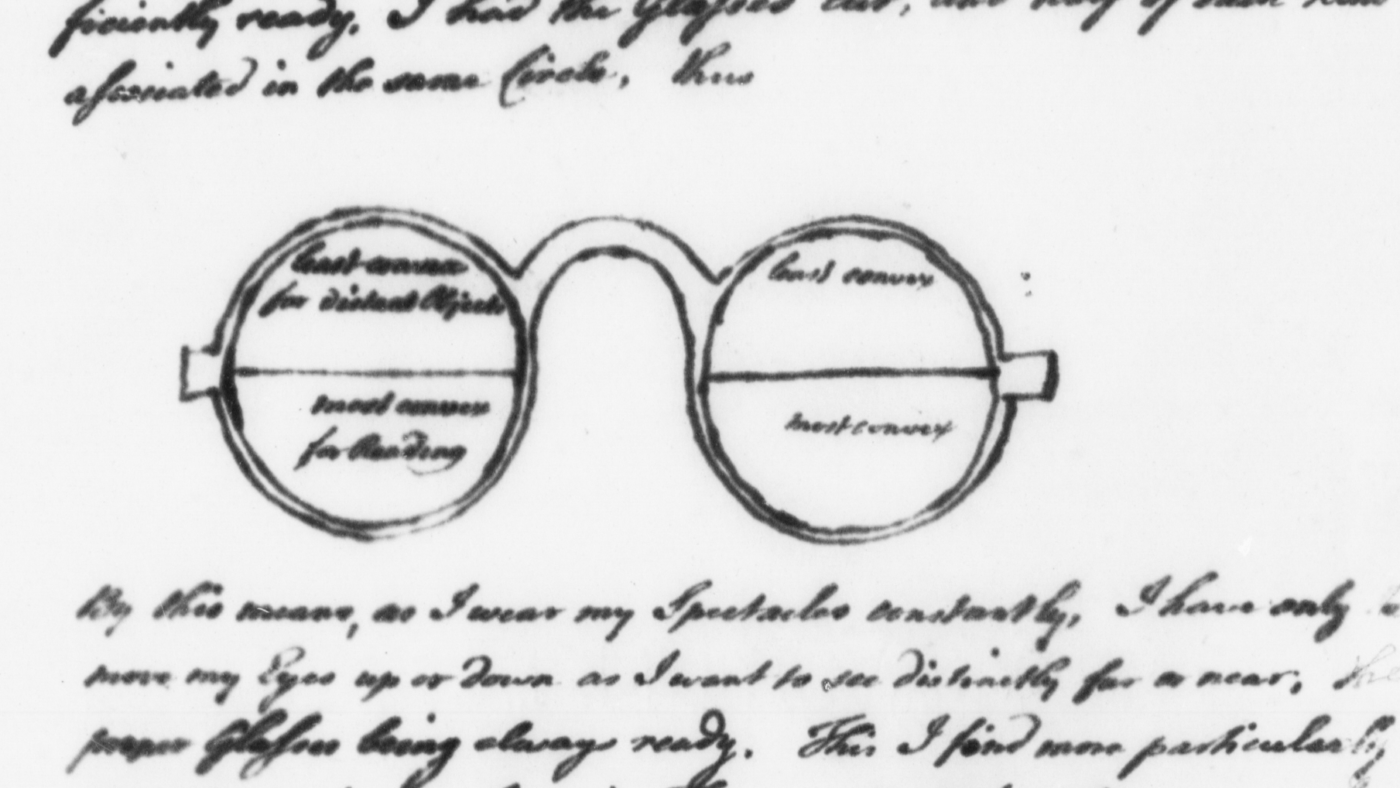 ficiently ready. I had the Glasses cut, and half of each kind
associated in the same Circle, thus
least convex
for distant Objects
least convex
most convex
for Reading
most convex
By this means, as I wear my Spectacles constantly, I have only
move my Eyes up or down as I want to see distinctly far or near, the
proper Glasses being always ready. This I find more particularly